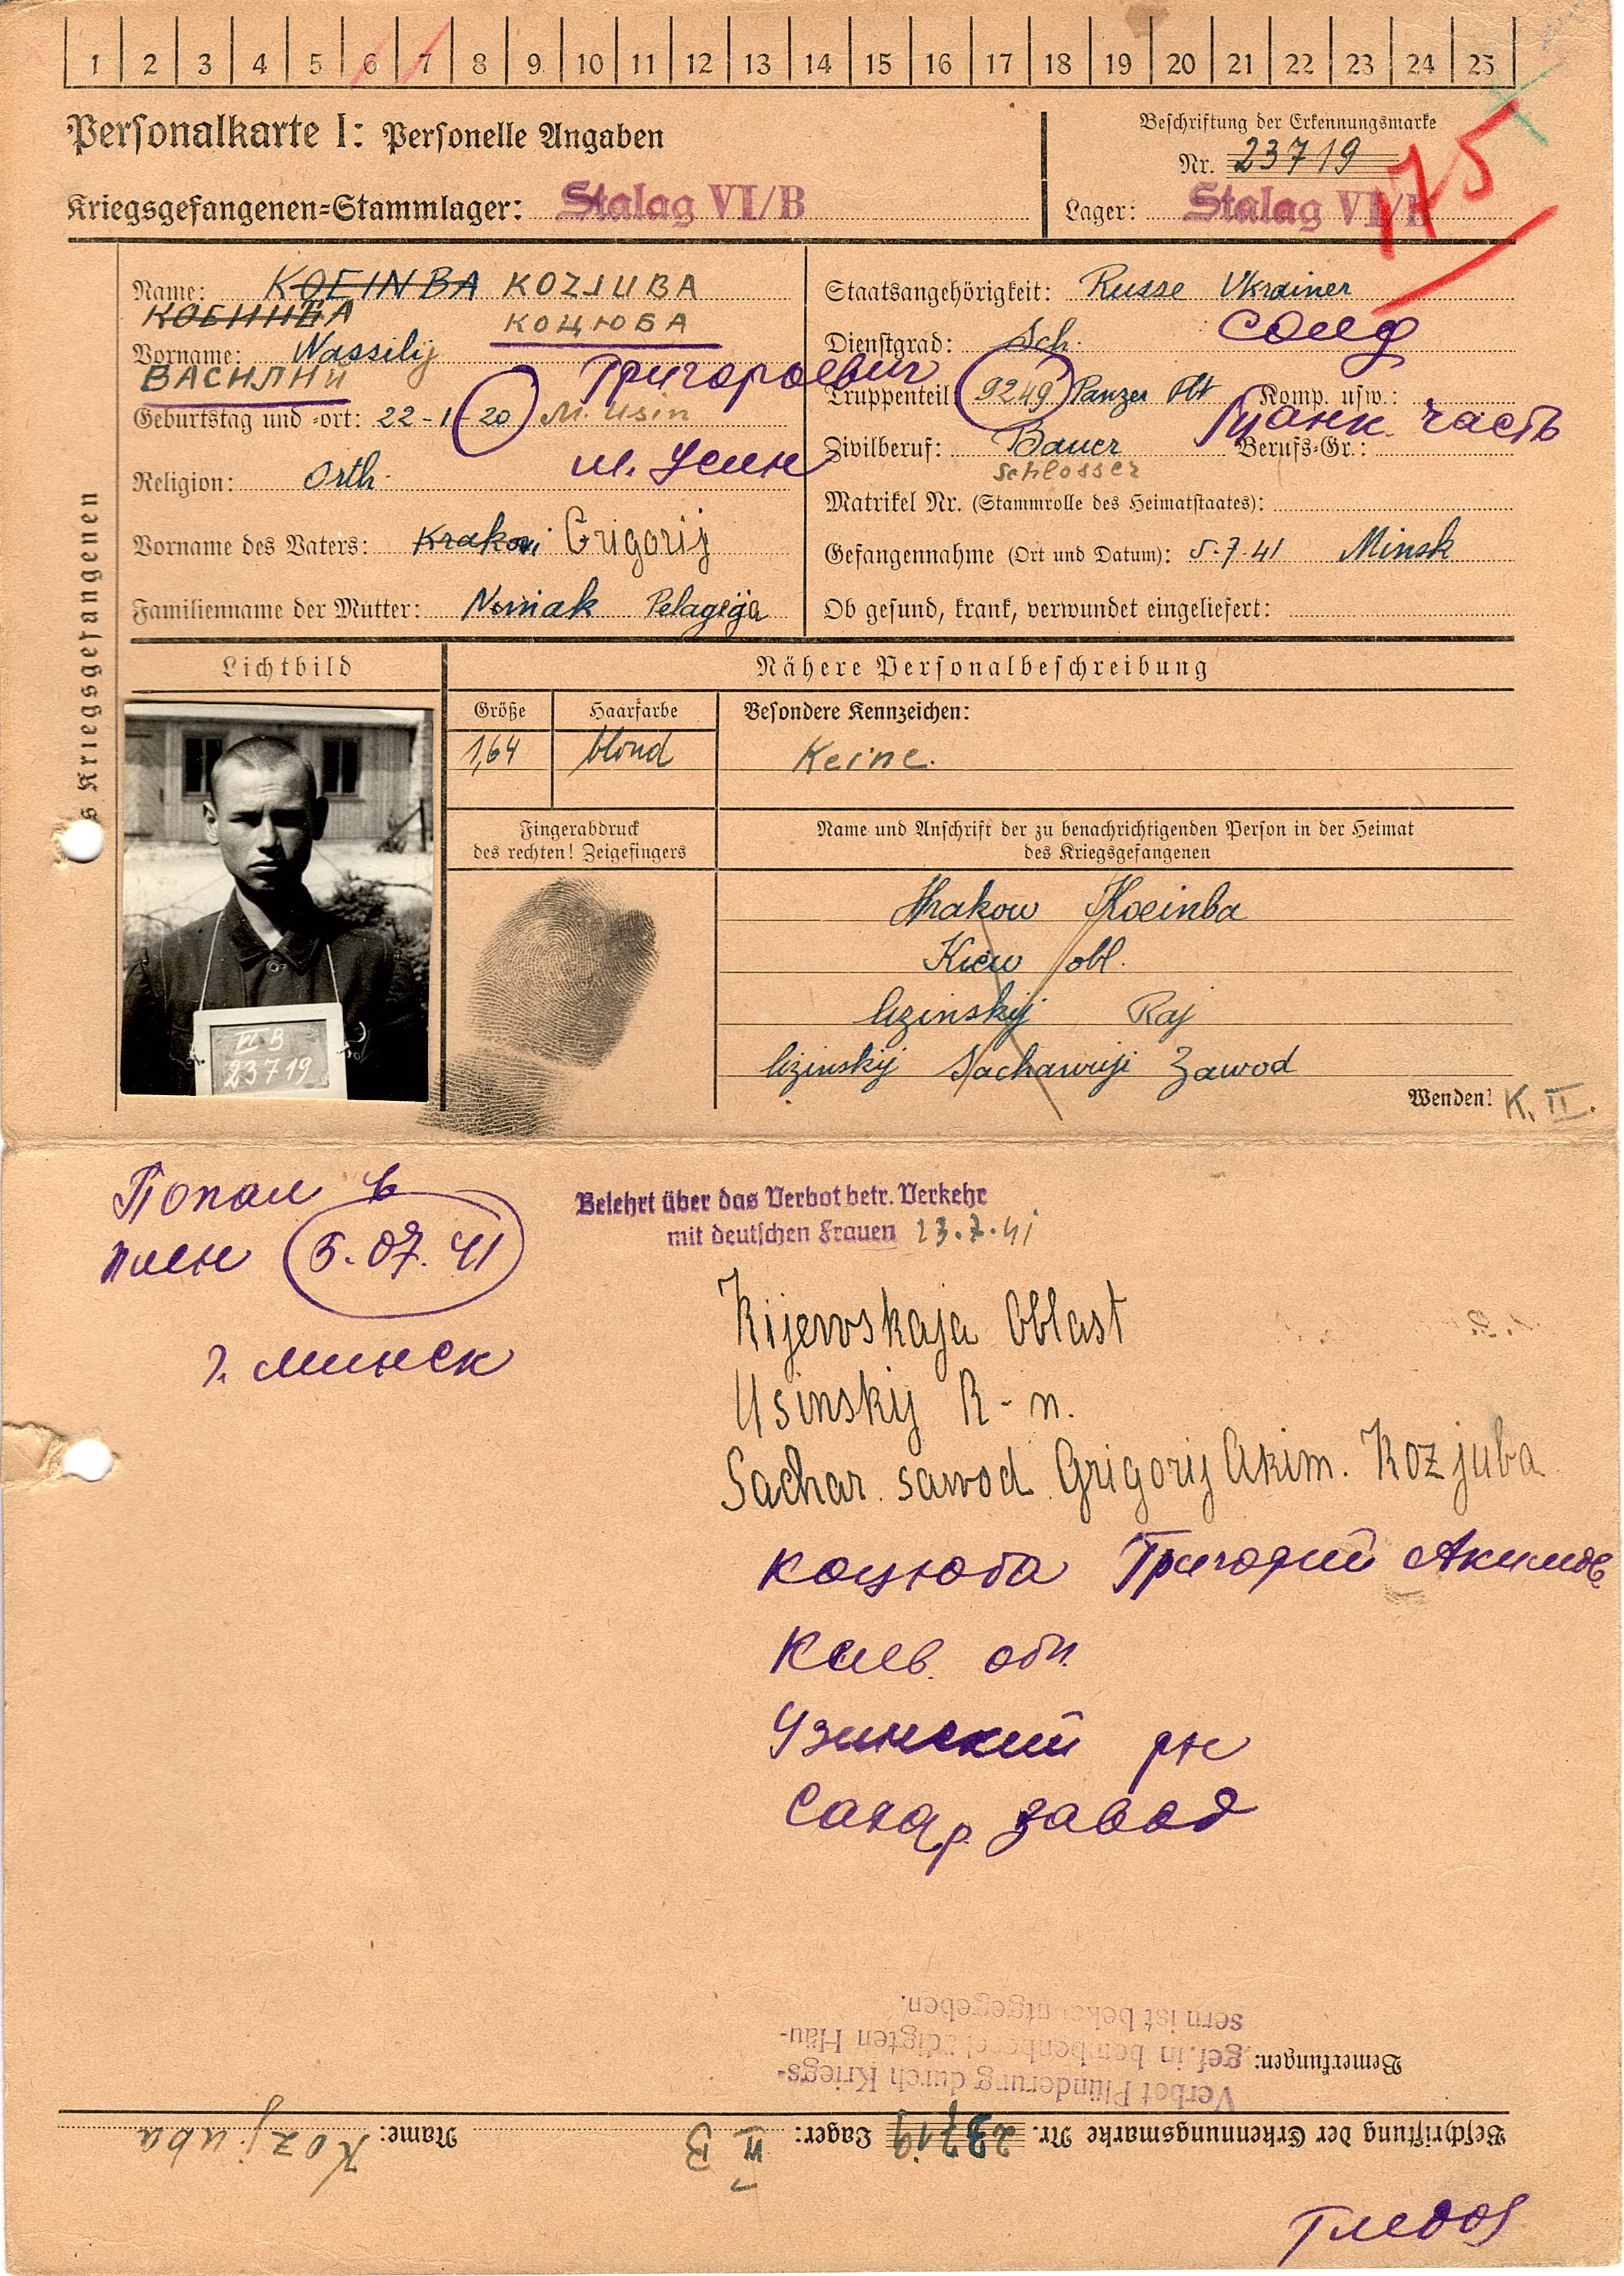 1 2 3 4 5 6 7 8 9 10 11 12 13 14 15 16 17 18 19 20 21 22 23 24 25
Personalkarte I: Personelle Angaben
Beschriftung der Erkennungsmarke
Nr. 23719
175
Kriegsgefangenen=Stammlager: Stalag VI/B
Lager: Stalag VI/B
des Kriegsgefangenen
Name: KOEINBA KOZJUBA
КОЕИНБА КОЦЮБА
Vorname: Wassilij
ВАСИЛИЙ Григорьевич
Geburtstag und =ort: 22-1-20 M. Usin
м. Усин
Religion: Orth.
Vorname des Vaters: Krakowi Grigorij
Familienname der Mutter: Nowiak Pelageja
Staatsangehörigkeit: Russe Ukrainer
Dienstgrad: Sch. солд
Truppenteil: 9249 Panzer Abt Komp. usw.:
Танк. часть
Zivilberuf: Bauer Berufs-Gr.:
Schlosser
Matrikel Nr. (Stammrolle des Heimatstaates):
Gefangennahme (Ort und Datum): 5.7.41 Minsk
Ob gesund, krank, verwundet eingeliefert:
Lichtbild
Nähere Personalbeschreibung
Größe Haarfarbe Besondere Kennzeichen:
1,64 blond Keine.
VI B
23719
Fingerabdruck
des rechten! Zeigefingers
Name und Anschrift der zu benachrichtigenden Person in der Heimat
des Kriegsgefangenen
Krakow Koeinba
Kiew obl.
Uzinskij Raj
Uzinskij Sacharniji Zawod
Wenden! K. II.
Попал в
плен 5.07.41
г. Минск
Belehrt über das Verbot betr. Verkehr
mit deutschen Frauen 23.7.41
Kijewskaja Oblast
Usinskij R-n.
Sachar. sawod Grigorij Akim. Kozjuba
Коцюба Григорий Акимов
Киев. обл.
Узинский рн
Сахар. завод
Bemerkungen:
Verbot Plünderung durch Kriegs-
gef. in bombenbeschädigten Häu-
sern ist bekanntgegeben.
Beschriftung der Erkennungsmarke Nr. 23719 Lager: VI B Name: Kozjuba